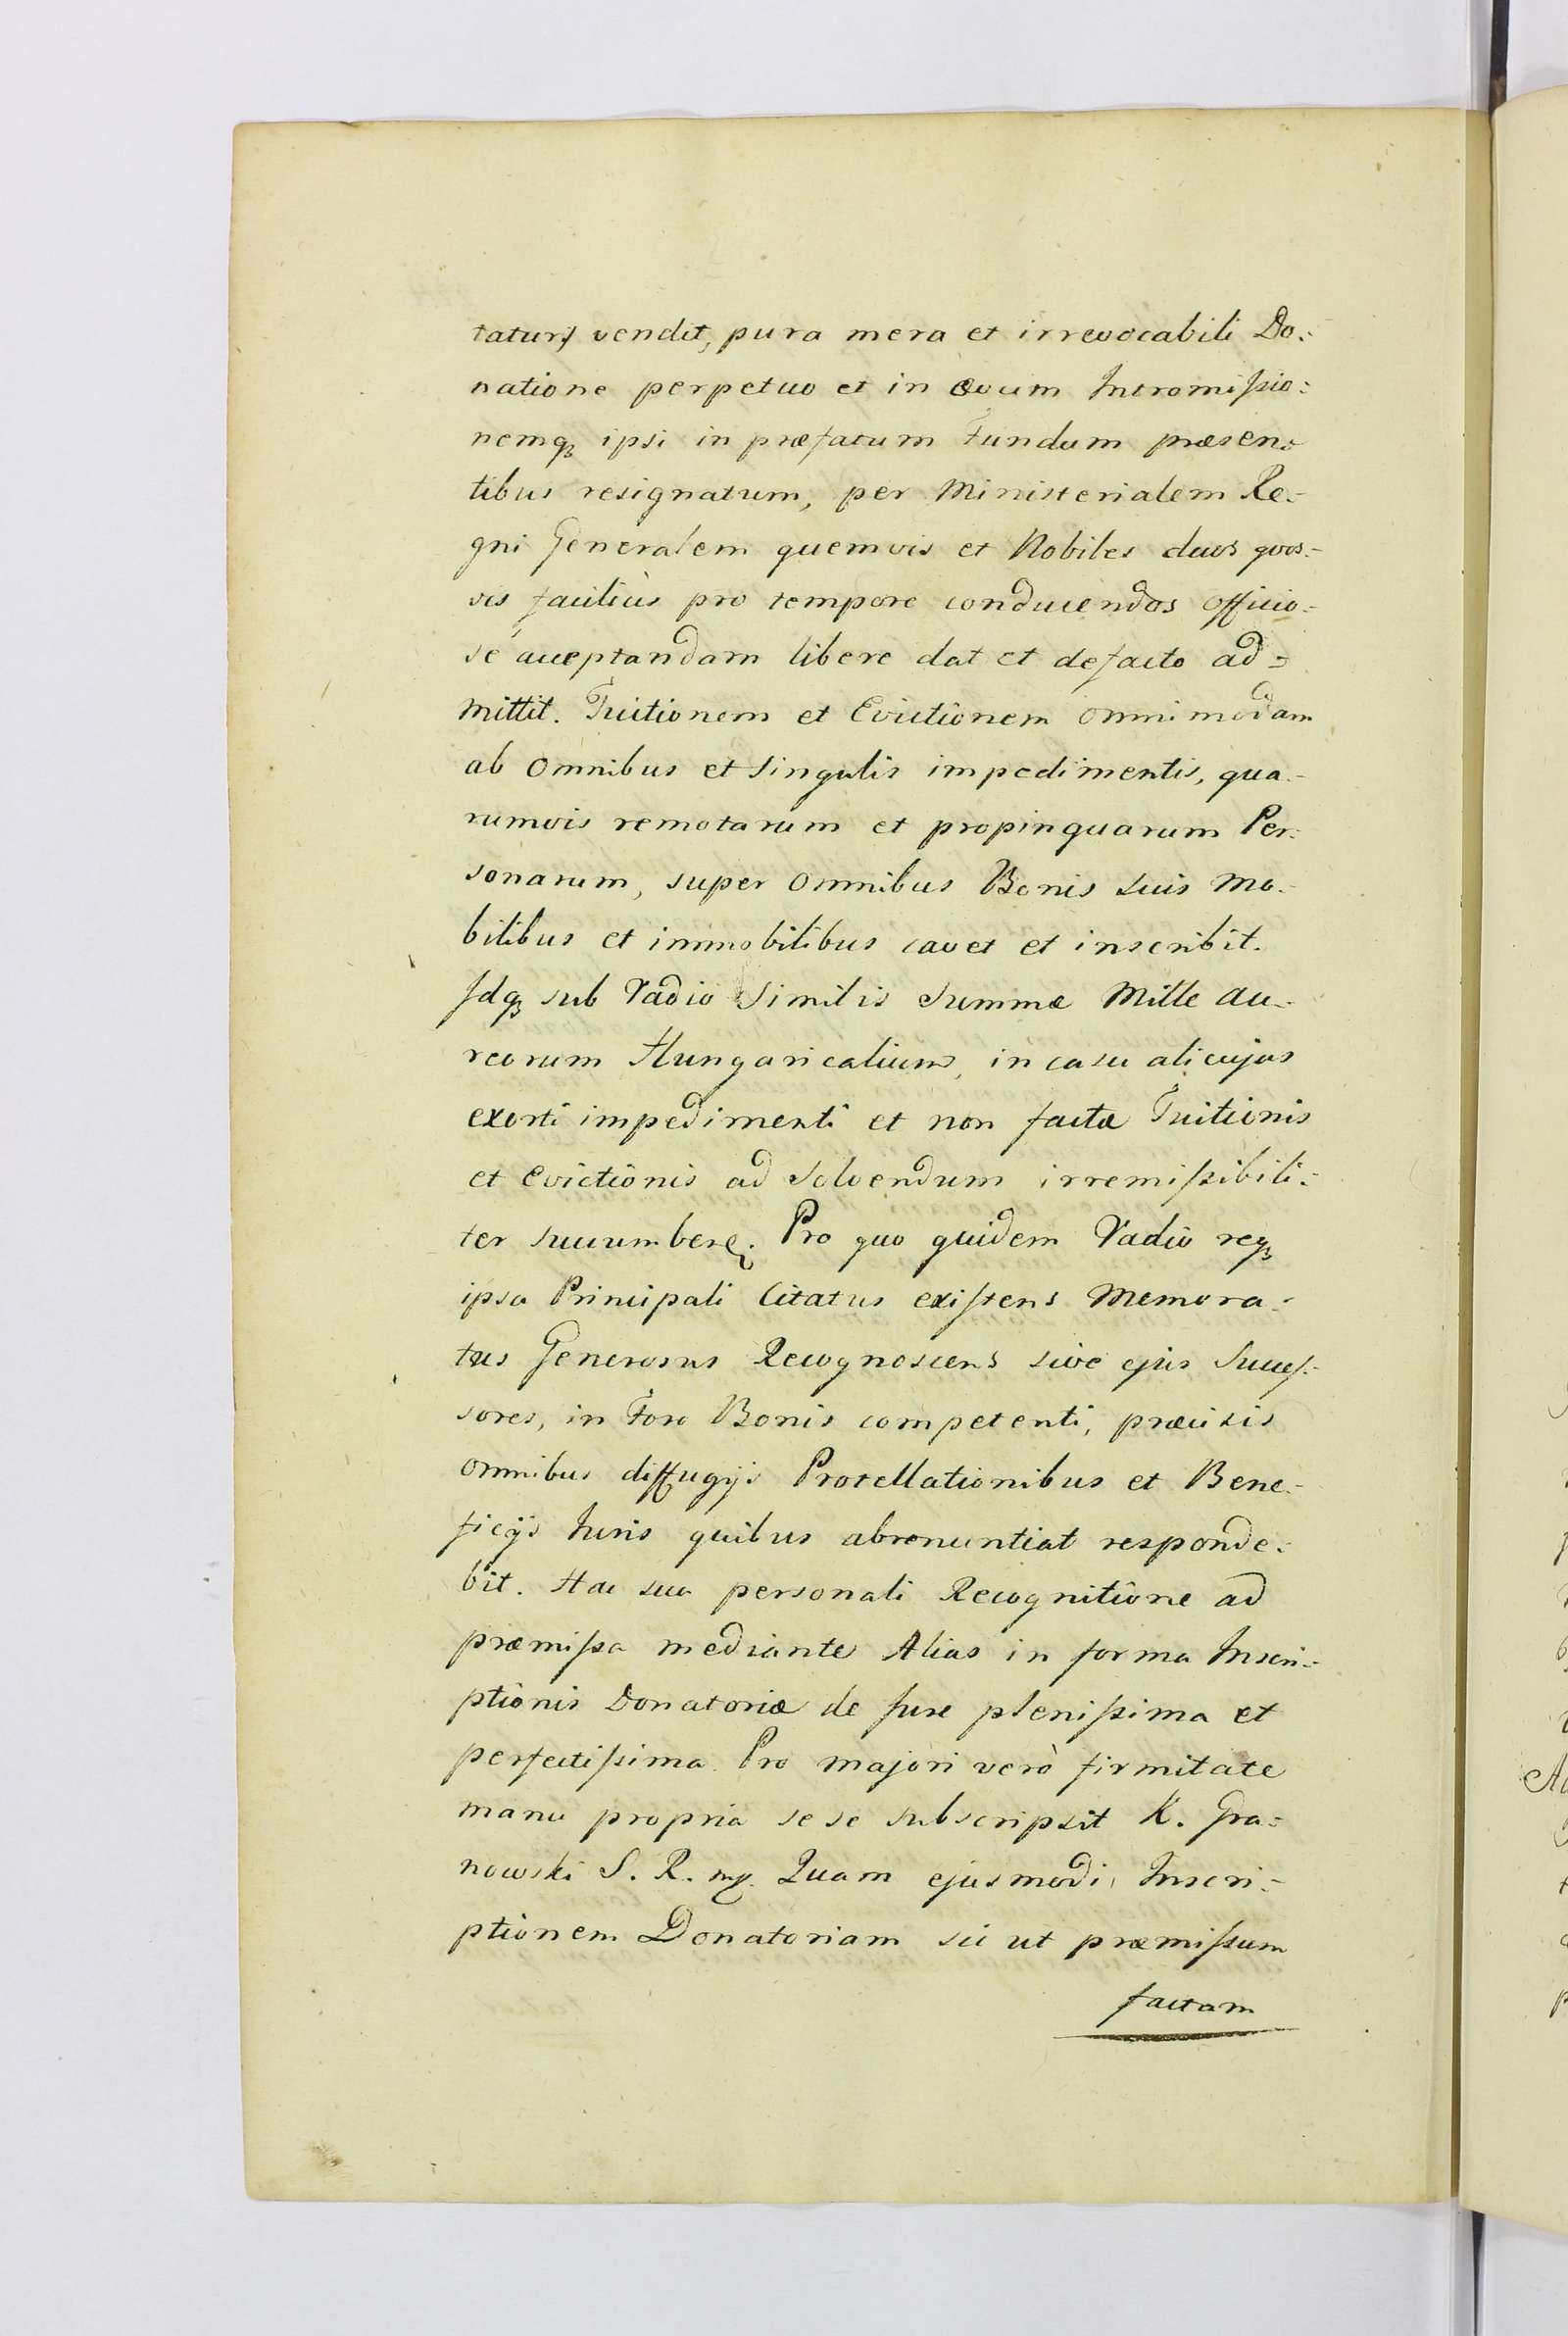 vendit, pura mera et irrevocabili Do:
natione perpetuo et in ævum Intromissio:
nemq3 ipsi in præfatum Fundum præsen:
tibus resignatum, per Ministerialem Re:
gni Generalem quemvis et Nobiles duos quos:
vis faciliùs pro tempore conducendos officio:
sè acceptandam libere dat et de facto ad:
mittit. Tuitionem et Evictionem omnimodam
ab omnibus et singulis impedimentis, qua:
rumvis remotarum et propinquarum Per:
sonarum, super omnibus Bonis suis mo:
bilibus et immobilibus cavet et inscribit.
Idq3 sub Vadio Similis Summæ Mille au:
reorum Hungaricalium, in casu alicujus
exorti impedimenti et non factæ Tuitionis
et Evictionis ad solvendum irremissibili:
ter succumbere. Pro quo quidem Vadio req3
ipsa Principali Citatus existens Memora:
tus Generosus Recognoscens sive ejus Succes:
sores, in Foro Bonis competenti, præcisis
omnibus diffugijs Protellationibus et Bene:
ficijs Iuris quibus abrenuntiat responde:
bit. Hac sua personali Recognitione ad
præmissa mediante Alias in forma Inscri:
ptionis Donatoriæ de Iure plenissima et
perfectissima. Pro majori verò firmitate
manu propria se se subscripsit K. Gra:
nowski S. R. mp. Quam ejusmodi Inscri:
ptionem Donatoriam sic ut præmissum
factam